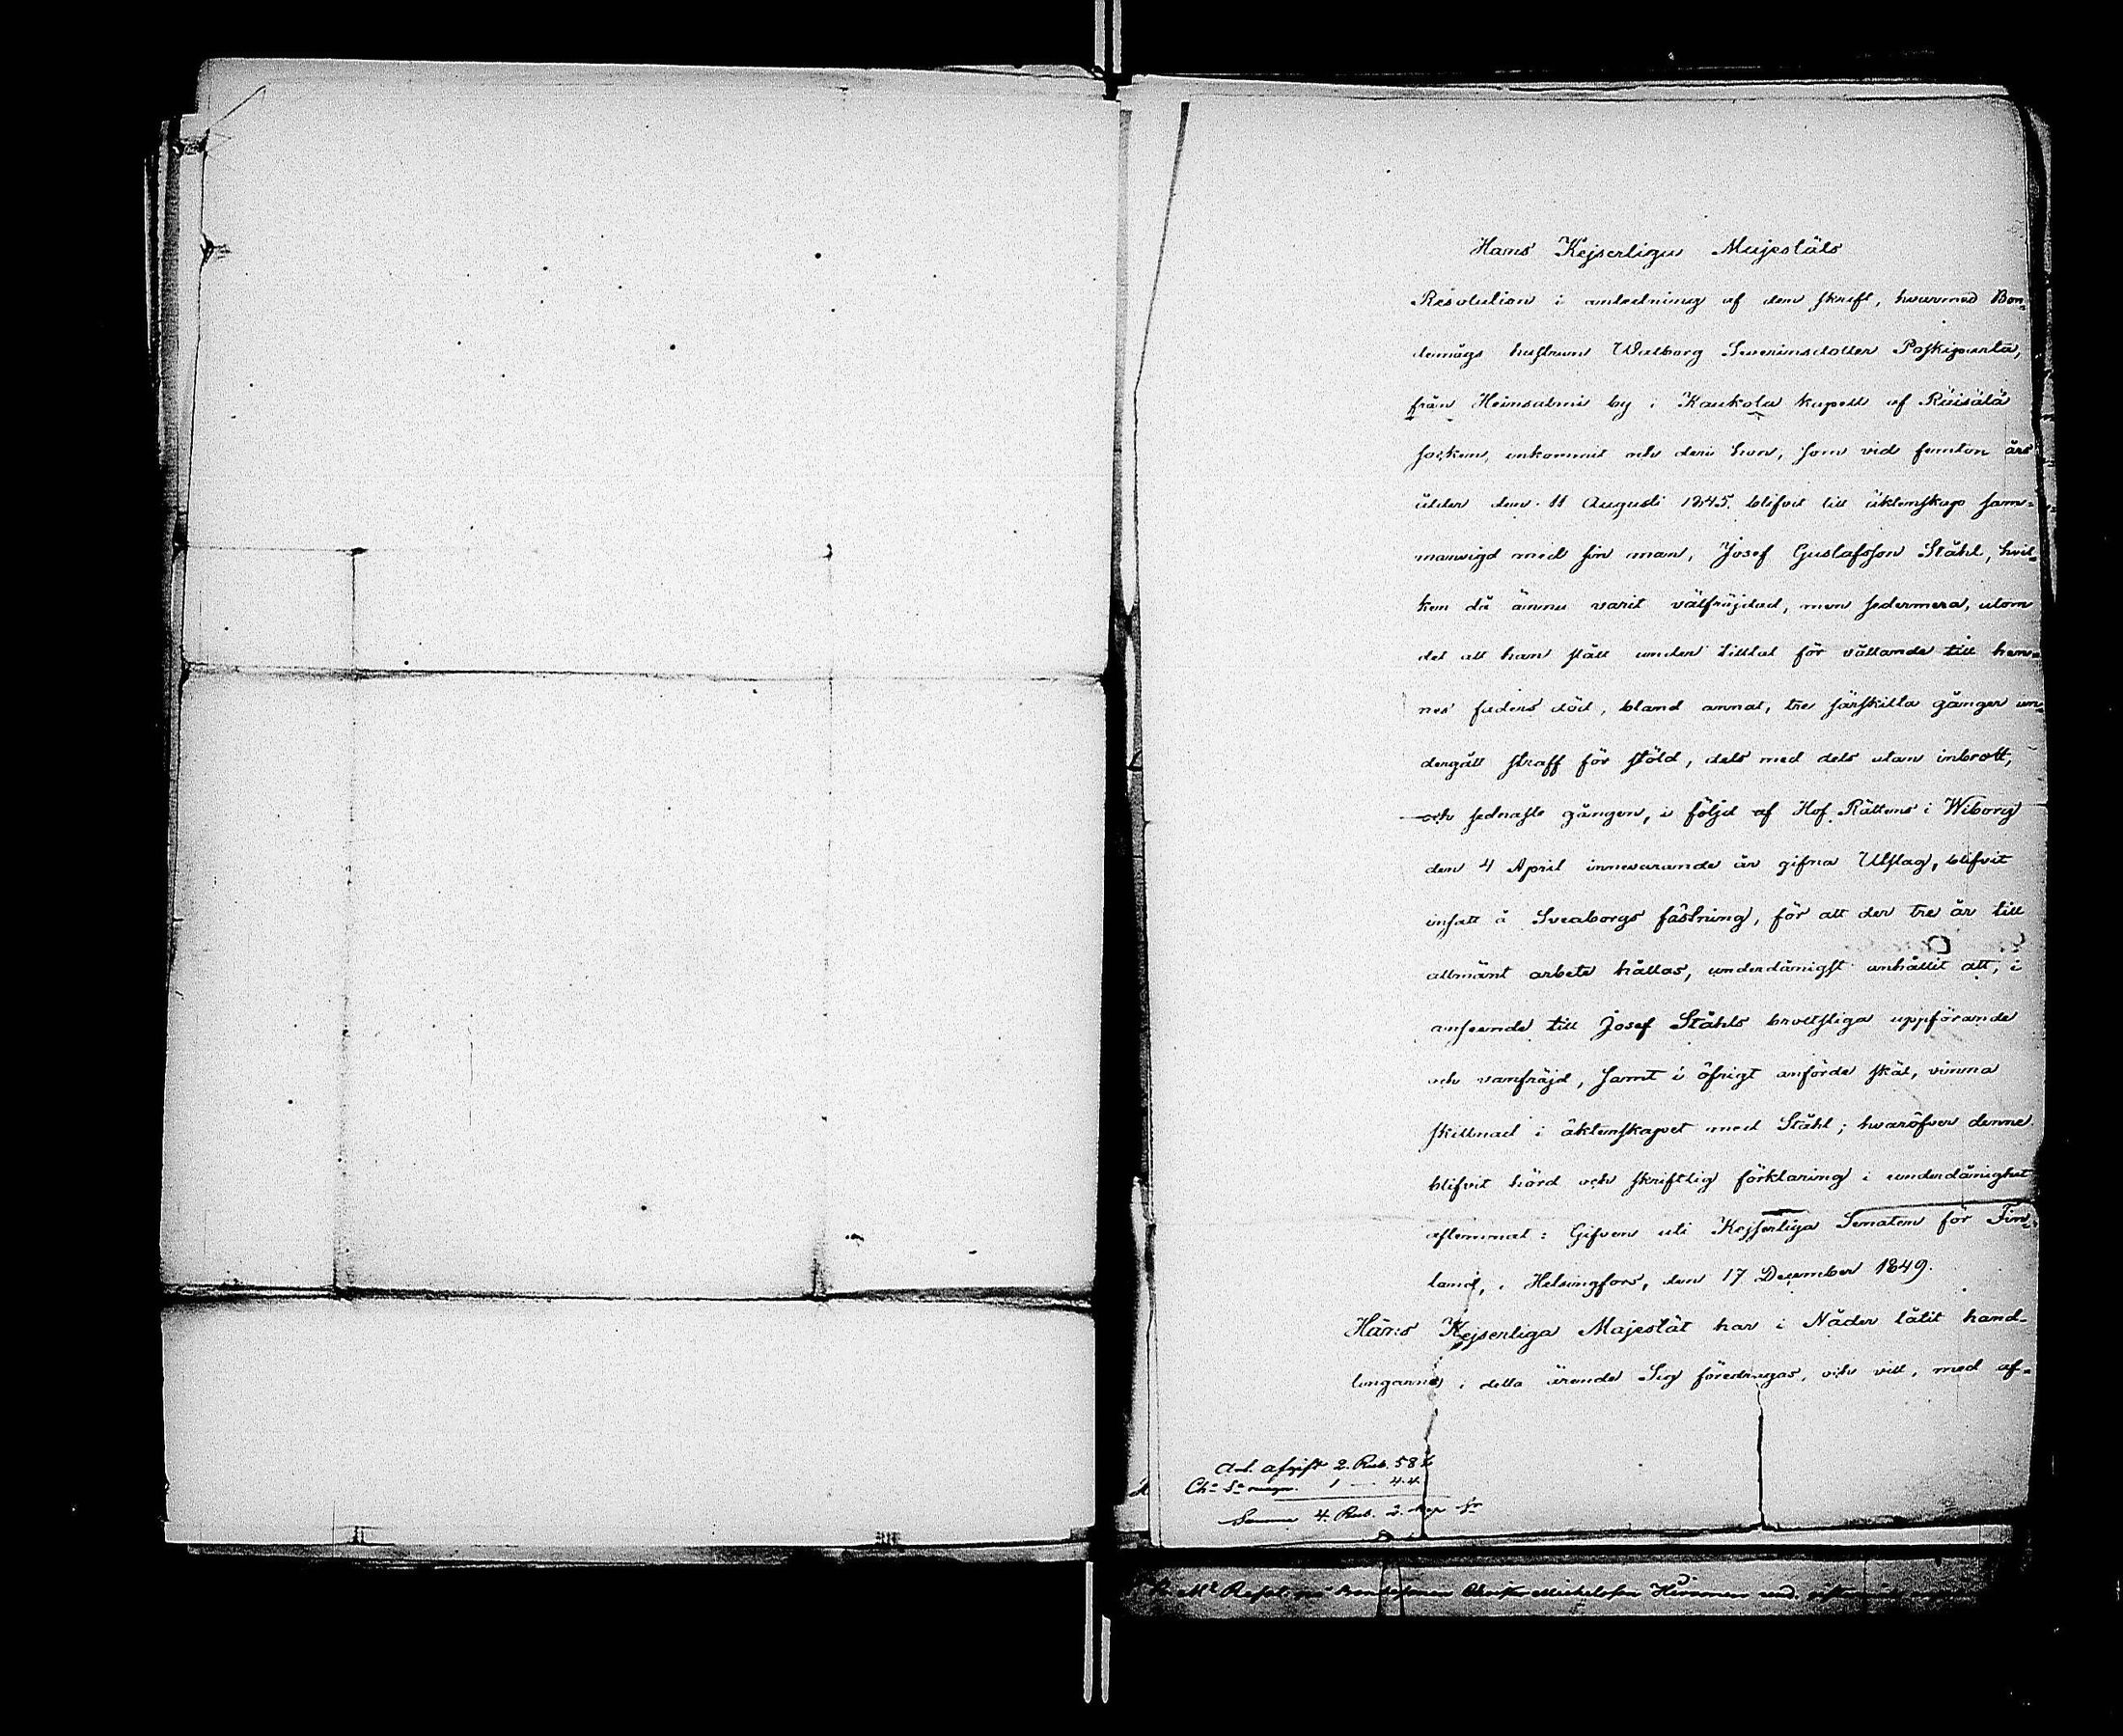 Hans Kejserliga Majestäts
Resolution i anledning af den skrift, hvarmed Bon-
demågs hustrun Walborg Severinsdotter Poskiparta,
från Heinsalmi by i Kaukola kapell af Räisälä
socken, inkommit och deri hon, som vid femton års
ålder den 11 Augusti 1845. blifvit till äktenskap sam-
manvigd med sin man, Josef Gustafsson Ståhl, hvil-
ken då ännu varit välfräjdad, men sedermera, utom
det att han stått under tilltal för vållande till hen-
nes faders död, bland annat, tre särskilta gånger un-
dergått straff för stöld, dels med dels utan inbrott,
och sednaste gången, i följd af Hof Rättens i Wiborg
den 4 April innevarande år gifna Utslag, blifvit
insatt å Sveaborgs fästning, för att der tre år till
allmänt arbete hållas, underdånigst anhållit att, i
anseende till Josef Ståhls brottsliga uppförande
och vanfräjd, samt i öfrigt anförde skäl, vinna
skillnad i äktenskapet med Ståhl; hvaröfver denne
blifvit hörd och skriftlig förklaring i underdånighet
aflemnat: Gifven uti Kejserliga Senaten för Fin-
land, i Helsingfors, den 17 December 1849.
Hans Kejserliga Majestät har i Nåder låtit hand-
lingarne i detta ärende Sig föredragas, och vill, med af-
afgift 2. Rub. 58
1 — 44
Summa 4. Rub. 2. kop Sr
Resol. på Michelsson Hinonen